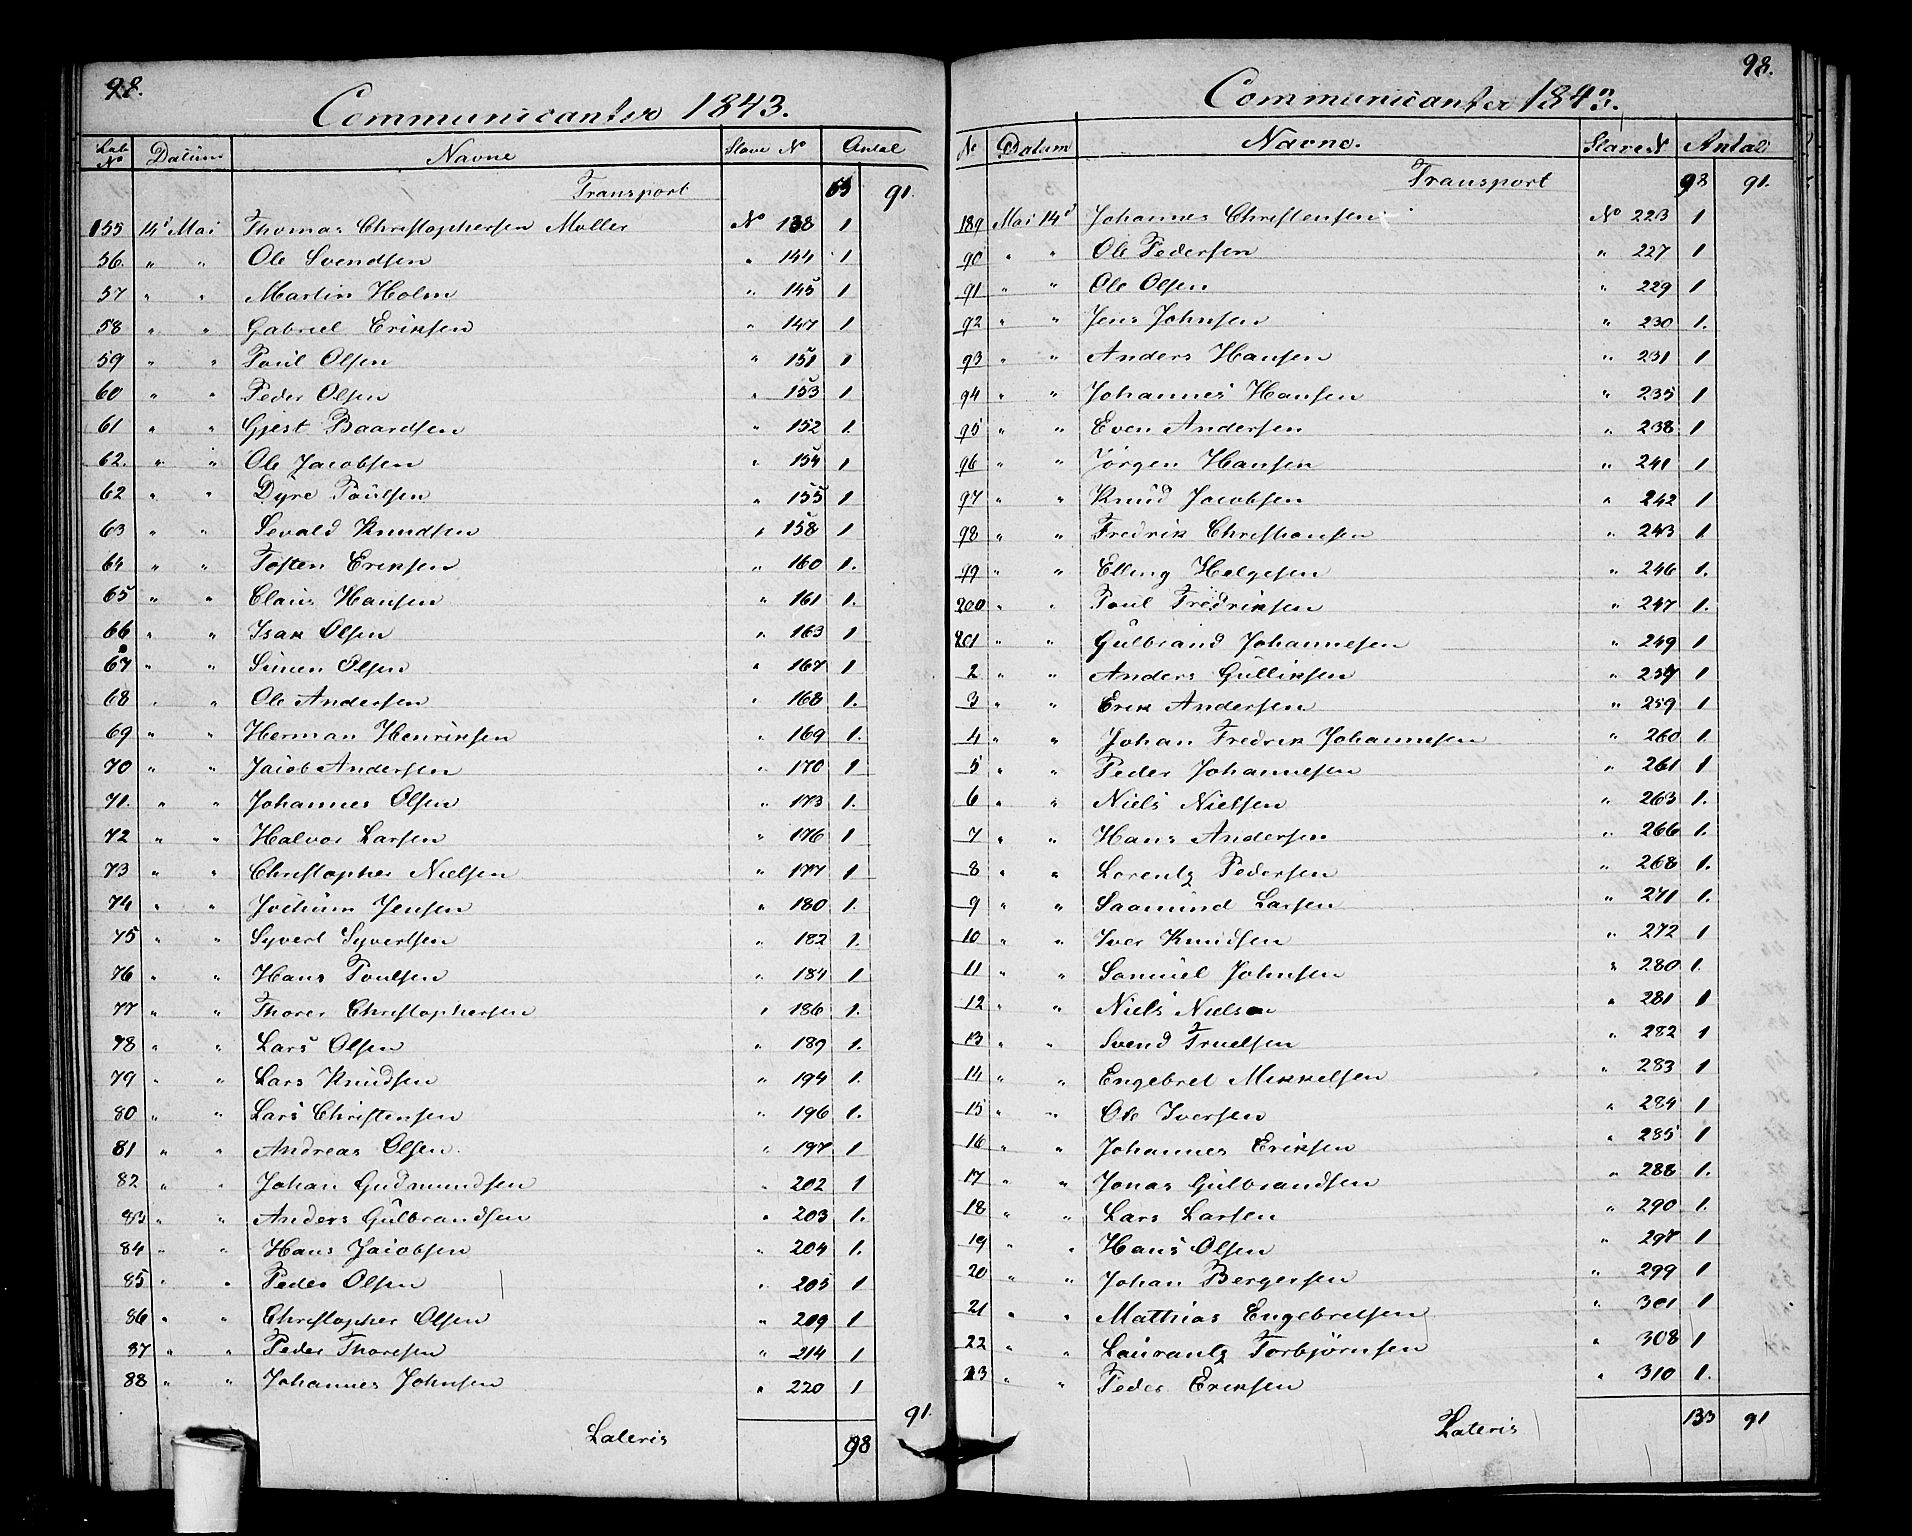 98.
Communicanter 1843.
Løb No Datum Navne Slave No Antal
Transport 63 91.
155 14d Mai Thomas Christophersen Møller No 138 1
56. " " Ole Svendsen " 144 1
57 " " Martin Holm " 145 1
58 " " Gabriel Eriksen " 147 1
59 " " Poul Olsen " 151 1
60 " " Peder Olsen " 153 1
61 " " Gjest Baardsen " 152 1.
62. " " Ole Jacobsen " 154 1
62 " " Dyre Poulsen " 155 1
63 " " Sevald Knudsen " 158 1
64 " " Tosten Eriksen " 160 1.
65 " " Claus Hansen " 161 1.
66 " " Isak Olsen " 163 1
67 " " Simen Olsen " 167 1
68 " " Ole Andersen " 168 1.
69 " " Herman Henriksen " 169 1.
70 " " Jacob Andersen " 170 1
71. " " Johannes Olsen " 173 1.
72 " " Halvor Larsen " 176 1
73 " " Christopher Nielsen " 177 1
74 " " Jochum Jensen " 180 1.
75 " " Syvert Syvertsen " 182 1.
76 " " Hans Poulsen " 184 1
77 " " Thorer Christophersen " 186 1.
78 " " Lars Olsen " 189 1.
79 " " Lars Knudsen " 194 1.
80 " " Lars Christensen " 196 1.
81 " " Andreas Olsen. " 197 1
82 " " Johan Gudmundsen " 202 1
83 " " Anders Gulbrandsen " 203 1.
84 " " Hans Jacobsen " 204 1.
85 " " Peder Olsen " 205 1
86 " " Christopher Olsen " 209 1
87 " " Peder Thoresen " 214 1
88 " " Johannes Johnsen " 220 1
Lateris 98 91.
98.
Communicanter 1843.
No Datum Navne. Slave No Antal
Transport 98 91.
189 Mai 14d Johannes Christensen No 223 1
90 " " Ole Pedersen " 227 1
91 " " Ole Olsen " 229 1
92 " " Jens Johnsen " 230 1.
93 " " Anders Hansen " 231 1
94 " " Johannes Hansen " 235 1
95 " " Even Andersen " 238 1
96 " " Jørgen Hansen " 241 1
97 " " Knud Jacobsen " 242 1
98 " " Fredrik Christiansen " 243 1
99 " " Elling Helgesen " 246 1.
200 " " Poul Fredriksen " 247 1.
201 " " Gulbrand Johannesen " 249 1
2 " " Anders Gulliksen " 257 1
3 " " Erik Andersen " 259 1
4 " " Johan Fredrik Johannesen " 260 1.
5 " " Peder Johannesen " 261 1
6 " " Niels Nielsen " 263 1.
7 " " Hans Andersen " 266 1.
8 " " Lorentz Pedersen " 268 1.
9 " " Saamund Larsen " 271 1.
10 " " Iver Knudsen " 272 1
11 " " Samuel Johnsen " 280 1.
12 " " Niels Nielsen " 281 1
13 " " Svend Truelsen " 282 1
14 " " Engebret Mikkelsen " 283 1
15 " " Ole Iversen " 284 1
16 " " Johannes Eriksen " 285 1
17 " " Jonas Gulbrandsen " 288 1.
18 " " Lars Larsen " 290 1.
19 " " Hans Olsen " 297 1
20 " " Johan Bergersen " 299 1
21 " " Matthias Engebretsen " 301 1
22 " " Laurantz Torbjørnsen " 308 1
23 " " Peder Eriksen " 310 1.
Lateris 133 91